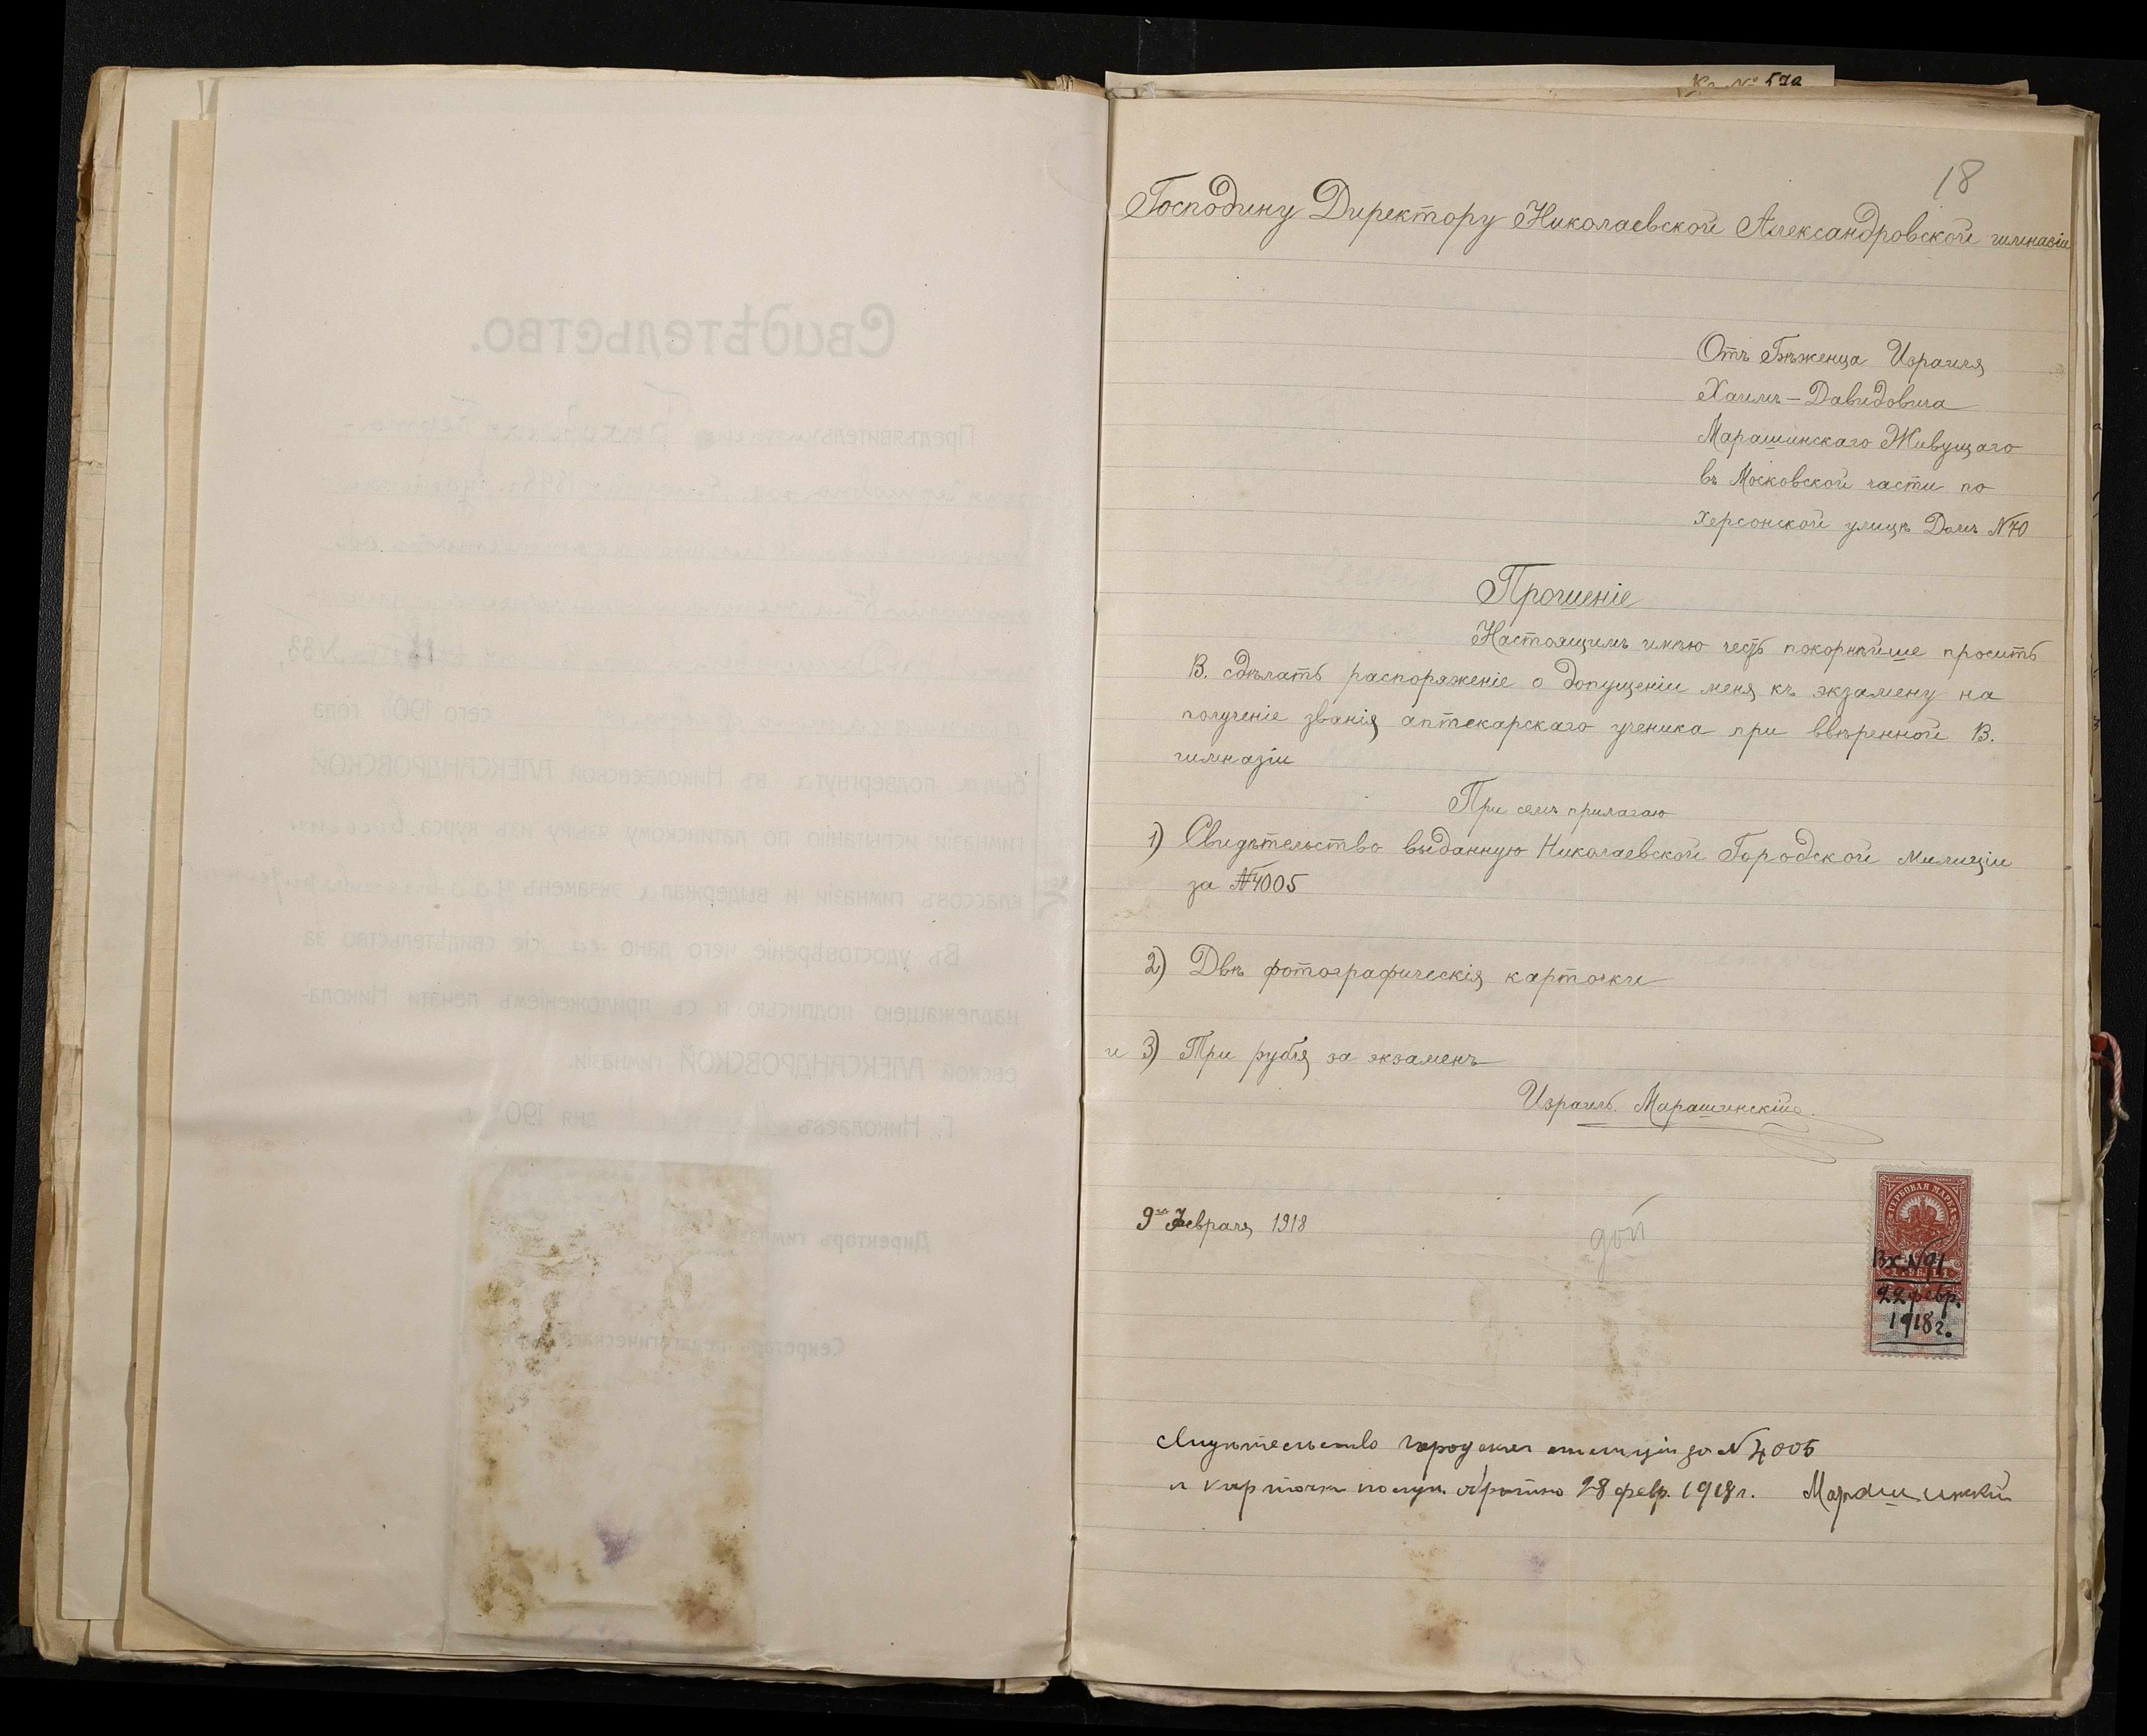 18
Господину Директору Николаевской Александровской гимназіи
Отъ Бѣженца Израиля
Хаимъ-Давидовича
Марашинскаго Живущаго
въ Московской части по
Херсонской улицѣ Домъ №70
Прошеніе
Настоящимъ имѣю честь покорнѣйше просить
В. сдѣлать распоряженіе о допущеніи меня къ экзамену на
полученіе званія аптекарскаго ученика при ввѣренной В.
гимназіи
При семъ прилагаю
1) Свидѣтельство выданную Николаевской Городской Милиціи
за №4005
2) Двѣ фотографическія карточки
и 3) Три рубля за экзаменъ
Израиль Марашинскій.
9го Февраля 1918
ГЕРБОВАЯ МАРКА
Вх №91
22 февр.
1918 г.
Свидѣтельство городской милиціи за №4005
и карточки получ. обратно 28 февр. 1918 г. Марашинский
Свидѣтельство.
Предъявительница
сего 190 года
была подвергнута въ Николаевской АЛЕКСАНДРОВСКОЙ
гимназіи испытанію по латинскому языку изъ курса
классовъ гимназіи и выдержала экзаменъ
Въ удостовѣреніе чего дано ей сіе свидѣтельство за
надлежащею подписью и съ приложеніемъ печати Никола-
евской АЛЕКСАНДРОВСКОЙ гимназіи.
Г. Николаевъ дня 190 г.
Директоръ
Секретарь педагогическаго